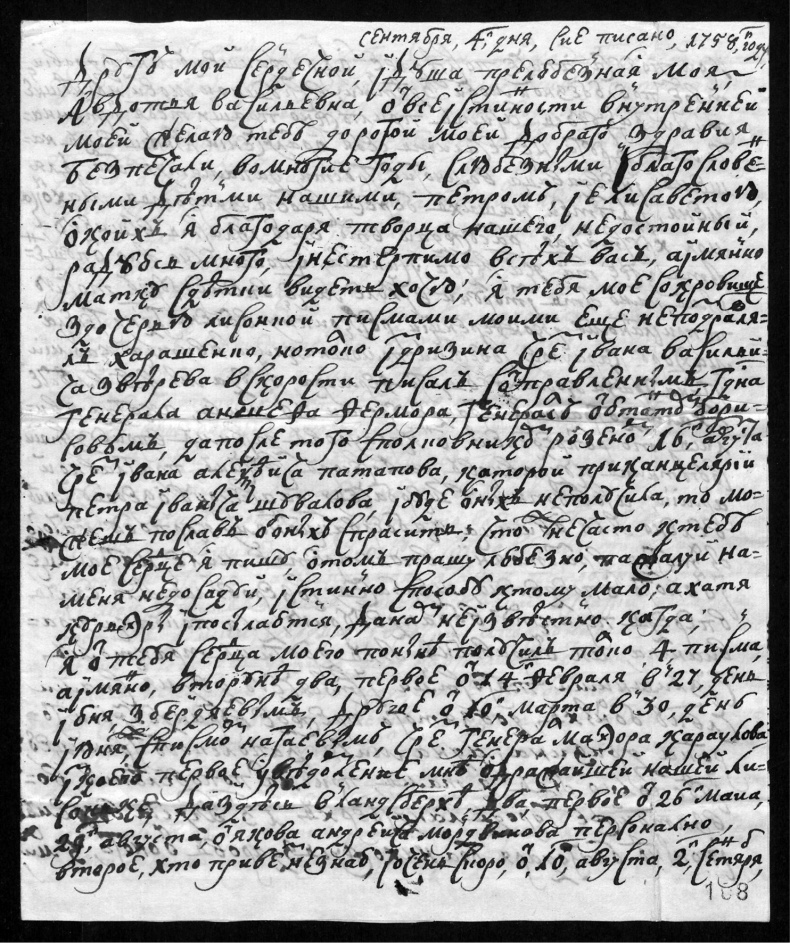 сентября, 4, дня, сие писано, 1758, году,
Другъ мой сердесной, iдуша прелюбезная моя,
Авдотья васильевна, ѿ всей iстинности внутренней
моей желаю тебѣ дорогой моей доброго здравия
безпечали, вомногие годы, слюбезными iблагослове-
ными дѣтми нашими, петромъ, iелисаветою,
ѿкоихъ я благодаря творца нашего, недостойный,
радуюсь много, iнестерпимо всѣхъ васъ, аiмянно
матку видеть хочу, я тебя мое сокровище
здочерью лисонкой писмами моими еще непоздравля-
лъ харашенко, нотокмо iзризина чрез iвана васильи-
ча звѣрева вскорости писалъ сотправленнымъ гдна
генерала аншефа фермора, генералъ
ловымъ, дапосле того сполковникомъ розеномъ, 16, августа
чрез iвана алексѣича патапова, каторой приканцелярiи
петра iваныча шувалова, iбуде онихъ неполучила, то мо-
жешъ пославъ ѿонихъ спрасить, что нечасто ктебѣ
мое серце я пишу ѿтомъ прашу любезно, пажалуй на-
меня недосадуй, iстинно способу ктому мало, ахатя
курьеръ iпосылается, данам неiзвѣстно когда,
я ѿтебя серца моего понынѣ получилъ токмо 4 писма,
аiмянно, вторунѣ два, первое ѿ 14 февраля в 27, день
iюня, збердяевымъ, другое ѿ 10, марта в 30, день
iюня, списмом натаевымъ, чрез генерал маэора караулова
iкоемъ первое увѣдомление мнѣ ѿдрожайшей нашей ли-
сонке, даздѣсь вландзберхѣ, два, первое ѿ 26 маиа,
29, августа, ѿякова андреича мордвинова персонально,
второе, хто привез незнаю, iочень скоро, ѿ 10, августа, 2, сентября,
108